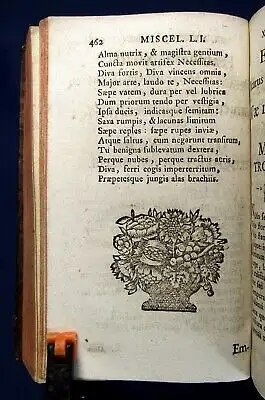 462 MISCEL. L. I.
Alma nutrix, & magistra gentium,
Cuncta movit artifex Necessitas.
Diva fortis, Diva vincens omnia,
Major arte, laudo te, Necessitas:
Sæpe vatem, dura per vel lubrica
Dum priorum tendo per vestigia,
Ipsa ducis, indicasque semitam:
Saxa rumpis, & lacunas limitum
Sæpe reples: sæpe rupes inviæ,
Atque saltus, cum negarunt transitum,
Tu benigna sublevatum dextera,
Perque nubes, perque tractus aëris,
Diva, ferri cogis imperterritum,
Præpetesque jungis alas brachiis.
Em-